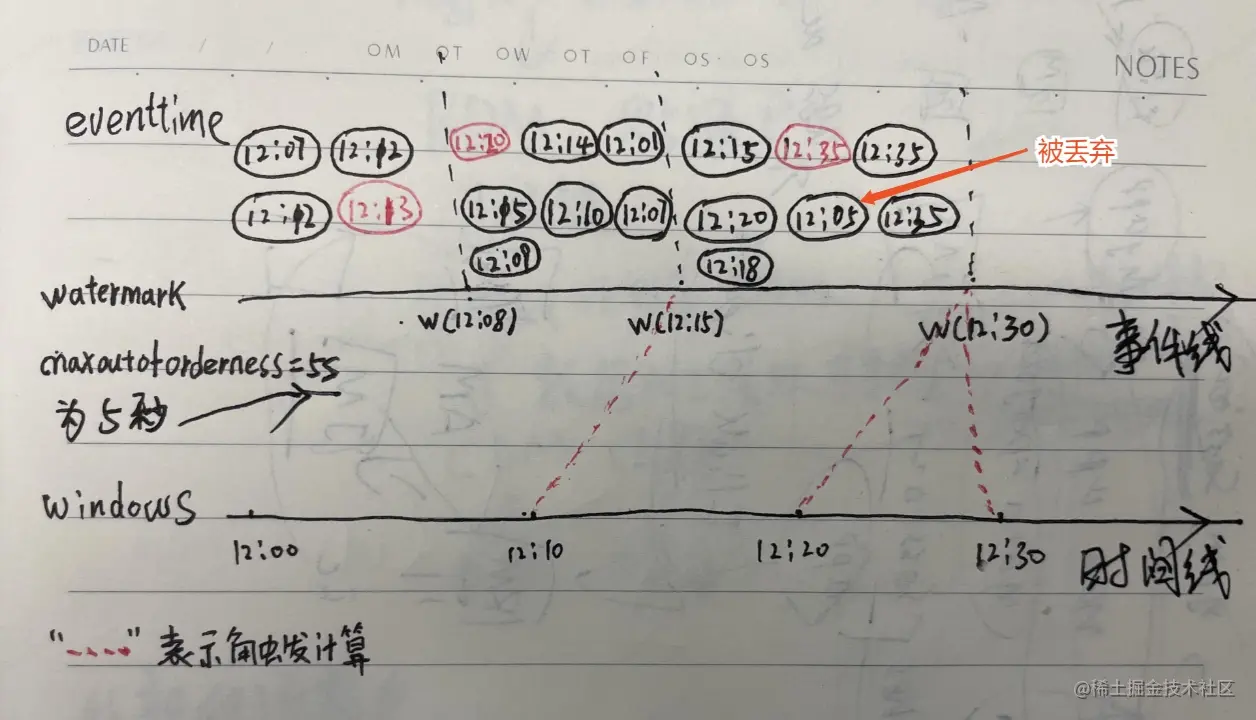 DATE / / OM OT OW OT OF OS OS NOTES
eventtime
12:07 12:12 12:20 12:14 12:01 12:15 12:35 12:35
被丢弃
12:12 12:13 12:15 12:10 12:07 12:20 12:05 12:35
12:09 12:18
watermark
W(12:08) W(12:15) W(12:30) 事件线
maxoutoforderness=5s
为5秒
windows
12:00 12:10 12:20 12:30 时间线
"----" 表示触发计算
@稀土掘金技术社区